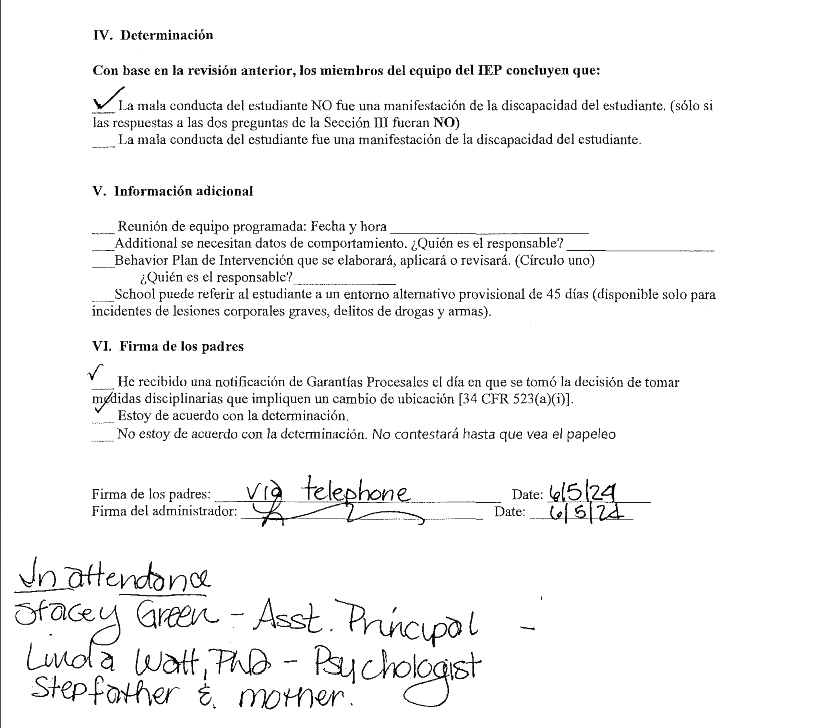 IV. Determinación
Con base en la revisión anterior, los miembros del equipo del IEP concluyen que:
✓ La mala conducta del estudiante NO fue una manifestación de la discapacidad del estudiante. (sólo si
las respuestas a las dos preguntas de la Sección III fueran NO)
___ La mala conducta del estudiante fue una manifestación de la discapacidad del estudiante.
V. Información adicional
___ Reunión de equipo programada: Fecha y hora ___
___Additional se necesitan datos de comportamiento. ¿Quién es el responsable? ___
___Behavior Plan de Intervención que se elaborará, aplicará o revisará. (Círculo uno)
¿Quién es el responsable? ___
___School puede referir al estudiante a un entorno alternativo provisional de 45 días (disponible solo para
incidentes de lesiones corporales graves, delitos de drogas y armas).
VI. Firma de los padres
✓ He recibido una notificación de Garantías Procesales el día en que se tomó la decisión de tomar
medidas disciplinarias que impliquen un cambio de ubicación [34 CFR 523(a)(i)].
✓ Estoy de acuerdo con la determinación.
___ No estoy de acuerdo con la determinación. No contestará hasta que vea el papeleo
Firma de los padres: via telephone Date: 6/5/24
Firma del administrador: Date: 6/5/24
In attendance
Stacey Green - Asst. Principal -
Linda Watt, PhD - Psychologist
Stepfather & mother.